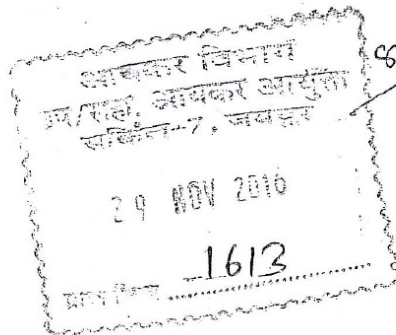 आयकर विभाग 8
उप/सहा. आयकर आयुक्त
सर्किल-7, जयपुर
29 NOV 2016
1613